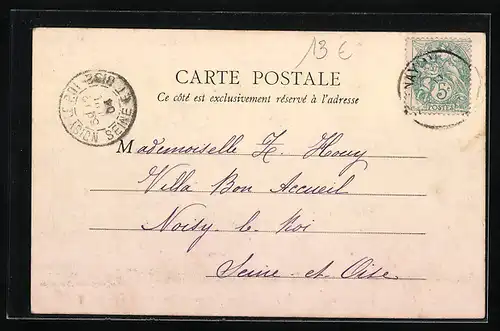 13 €
CARTE POSTALE
Ce côté est exclusivement réservé à l'adresse
5c
POSTES
SEINE
Mademoiselle H. Houy
Villa Bon Accueil
Noisy-le-Roi
Seine-et-Oise